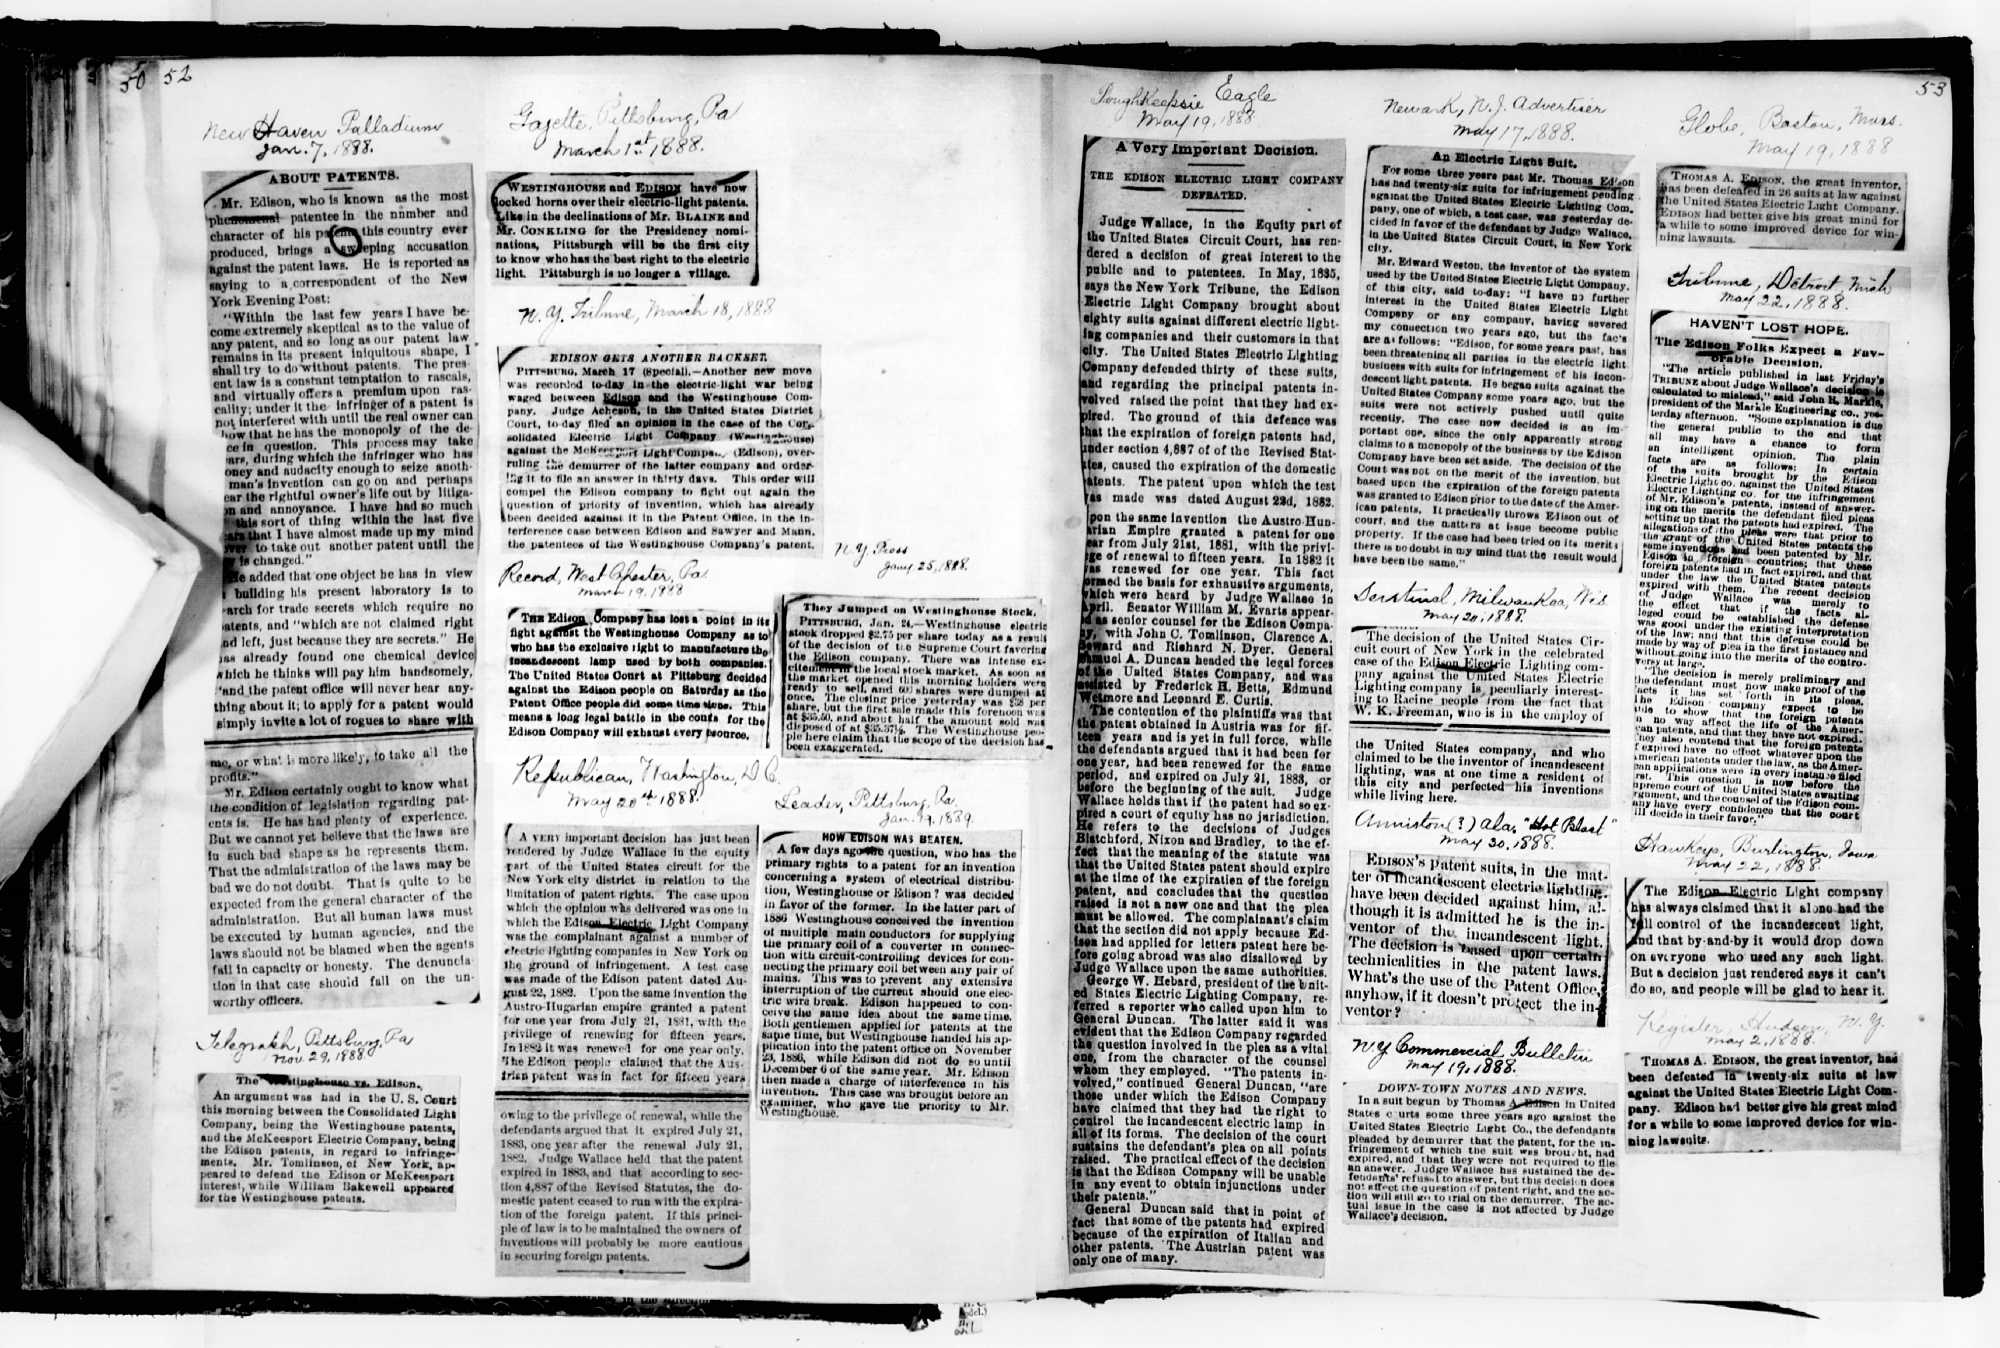 50 52
New Haven Palladium
Jan. 7, 1888.
ABOUT PATENTS.
Mr. Edison, who is known as the most
phenomenal patentee in the number and
character of his patents this country ever
produced, brings a sweeping accusation
against the patent laws. He is reported as
saying to a correspondent of the New
York Evening Post:
"Within the last few years I have be-
come extremely skeptical as to the value of
any patent, and so long as our patent law
remains in its present iniquitous shape, I
shall try to do without patents. The pres-
ent law is a constant temptation to rascals,
and virtually offers a premium upon ras-
cality; under it the infringer of a patent is
not interfered with until the real owner can
how that he has the monopoly of the de-
ce in question. This process may take
ars, during which the infringer who has
oney and audacity enough to seize anoth-
man's invention can go on and perhaps
ear the rightful owner's life out by litiga-
on and annoyance. I have had so much
this sort of thing within the last five
ears that I have almost made up my mind
ver to take out another patent until the
is changed."
He added that one object he has in view
building his present laboratory is to
arch for trade secrets which require no
atents, and "which are not claimed right
nd left, just because they are secrets." He
as already found one chemical device
which he thinks will pay him handsomely,
"and the patent office will never hear any-
thing about it; to apply for a patent would
simply invite a lot of rogues to share with
me, or what is more likely, to take all the
profits."
Mr. Edison certainly ought to know what
the condition of legislation regarding pat-
ents is. He has had plenty of experience.
But we cannot yet believe that the laws are
in such bad shape as he represents them.
That the administration of the laws may be
bad we do not doubt. That is quite to be
expected from the general character of the
administration. But all human laws must
be executed by human agencies, and the
laws should not be blamed when the agents
fail in capacity or honesty. The denuncia-
tion in that case should fall on the un-
worthy officers.
Telegraph, Pittsburg, Pa
Nov. 29, 1888
The Westinghouse vs. Edison.
An argument was had in the U. S. Court
this morning between the Consolidated Light
Company, being the Westinghouse patents,
and the McKeesport Electric Company, being
the Edison patents, in regard to infringe-
ments. Mr. Tomlinson, of New York, ap-
peared to defend the Edison or McKeesport
interest, while William Bakewell appeared
for the Westinghouse patents.
Gazette, Pittsburg, Pa
March 1st 1888.
WESTINGHOUSE and EDISON have now
locked horns over their electric-light patents.
Like in the declinations of Mr. BLAINE and
Mr. CONKLING for the Presidency nomi-
nations, Pittsburgh will be the first city
to know who has the best right to the electric
light. Pittsburgh is no longer a village.
N. Y. Tribune, March 18, 1888
EDISON GETS ANOTHER BACKSET.
PITTSBURG, March 17 (Special).—Another new move
was recorded to-day in the electric-light war being
waged between Edison and the Westinghouse Com-
pany. Judge Acheson, in the United States District
Court, to-day filed an opinion in the case of the Con-
solidated Electric Light Company (Westinghouse)
against the McKeesport Light Compa.. (Edison), over-
ruling the demurrer of the latter company and order-
ing it to file an answer in thirty days. This order will
compel the Edison company to fight out again the
question of priority of invention, which has already
been decided against it in the Patent Office, in the in-
terference case between Edison and Sawyer and Mann,
the patentees of the Westinghouse Company's patent.
Record, West Chester, Pa.
March 19, 1888
THE Edison Company has lost a point in its
fight against the Westinghouse Company as to
who has the exclusive right to manufacture the
incandescent lamp used by both companies.
The United States Court at Pittsburg decided
against the Edison people on Saturday as the
Patent Office people did some time since. This
means a long legal battle in the courts for the
Edison Company will exhaust every resource.
Republican, Washington, D C.
May 20th 1888.
A VERY important decision has just been
rendered by Judge Wallace in the equity
part of the United States circuit for the
New York city district in relation to the
limitation of patent rights. The case upon
which the opinion was delivered was one in
which the Edison Electric Light Company
was the complainant against a number of
electric lighting companies in New York on
the ground of infringement. A test case
was made of the Edison patent dated Au-
gust 22, 1882. Upon the same invention the
Austro-Hugarian empire granted a patent
for one year from July 21, 1881, with the
privilege of renewing for fifteen years.
In 1882 it was renewed for one year only.
The Edison people claimed that the Aus-
trian patent was in fact for fifteen years
owing to the privilege of renewal, while the
defendants argued that it expired July 21,
1883, one year after the renewal July 21,
1882. Judge Wallace held that the patent
expired in 1883, and that according to sec-
tion 4,887 of the Revised Statutes, the do-
mestic patent ceased to run with the expira-
tion of the foreign patent. If this princi-
ple of law is to be maintained the owners of
inventions will probably be more cautious
in securing foreign patents.
N. Y. Press
Jany 25, 1888.
They Jumped on Westinghouse Stock.
PITTSBURG, Jan. 24.—Westinghouse electric
stock dropped $2.75 per share today as a result
of the decision of the Supreme Court favoring
the Edison company. There was intense ex-
citement in the local stock market. As soon as
the market opened this morning holders were
ready to sell, and 600 shares were dumped at
once. The closing price yesterday was $38 per
share, but the first sale made this forenoon was
at $35.50, and about half the amount sold was
disposed of at $35.37½. The Westinghouse peo-
ple here claim that the scope of the decision has
been exaggerated.
Leader, Pittsburg, Pa.
Jan. 19, 1889.
HOW EDISON WAS BEATEN.
A few days ago the question, who has the
primary rights to a patent for an invention
concerning a system of electrical distribu-
tion, Westinghouse or Edison? was decided
in favor of the former. In the latter part of
1886 Westinghouse conceived the invention
of multiple main conductors for supplying
the primary coil of a converter in connec-
tion with circuit-controlling devices for con-
necting the primary coil between any pair of
mains. This was to prevent any extensive
interruption of the current should one elec-
tric wire break. Edison happened to con-
ceive the same idea about the same time.
Both gentlemen applied for patents at the
same time, but Westinghouse handed his ap-
plication into the patent office on November
23, 1886, while Edison did not do so until
December 6 of the same year. Mr. Edison
then made a charge of interference in his
invention. This case was brought before an
examiner, who gave the priority to Mr.
Westinghouse.
53
Poughkeepsie Eagle
May 19, 1888
A Very Important Decision.
THE EDISON ELECTRIC LIGHT COMPANY
DEFEATED.
Judge Wallace, in the Equity part of
the United States Circuit Court, has ren-
dered a decision of great interest to the
public and to patentees. In May, 1885,
says the New York Tribune, the Edison
Electric Light Company brought about
eighty suits against different electric light-
ing companies and their customers in that
city. The United States Electric Lighting
Company defended thirty of these suits,
and regarding the principal patents in-
volved raised the point that they had ex-
pired. The ground of this defence was
that the expiration of foreign patents had,
under section 4,887 of of the Revised Stat-
utes, caused the expiration of the domestic
patents. The patent upon which the test
was made was dated August 22d, 1882.
Upon the same invention the Austro-Hun-
garian Empire granted a patent for one
year from July 21st, 1881, with the privi-
lege of renewal to fifteen years. In 1882 it
was renewed for one year. This fact
formed the basis for exhaustive arguments,
which were heard by Judge Wallace in
April. Senator William M. Evarts appear-
ed as senior counsel for the Edison Compa-
ny, with John C. Tomlinson, Clarence A.
Seward and Richard N. Dyer. General
Samuel A. Duncan headed the legal forces
of the United States Company, and was
assisted by Frederick H. Betts, Edmund
Wetmore and Leonard E. Curtis.
The contention of the plaintiffs was that
the patent obtained in Austria was for fif-
teen years and is yet in full force, while
the defendants argued that it had been for
one year, had been renewed for the same
period, and expired on July 21, 1883, or
before the beginning of the suit. Judge
Wallace holds that if the patent had so ex-
pired a court of equity has no jurisdiction.
He refers to the decisions of Judges
Blatchford, Nixon and Bradley, to the ef-
fect that the meaning of the statute was
that the United States patent should expire
at the time of the expiration of the foreign
patent, and concludes that the question
raised is not a new one and that the plea
must be allowed. The complainant's claim
that the section did not apply because Ed-
ison had applied for letters patent here be-
fore going abroad was also disallowed by
Judge Wallace upon the same authorities.
George W. Hebard, president of the Unit-
ed States Electric Lighting Company, re-
ferred a reporter who called upon him to
General Duncan. The latter said it was
evident that the Edison Company regarded
the question involved in the plea as a vital
one, from the character of the counsel
whom they employed. "The patents in-
volved," continued General Duncan, "are
those under which the Edison Company
have claimed that they had the right to
control the incandescent electric lamp in
all of its forms. The decision of the court
sustains the defendant's plea on all points
raised. The practical effect of the decision
is that the Edison Company will be unable
in any event to obtain injunctions under
their patents."
General Duncan said that in point of
fact that some of the patents had expired
because of the expiration of Italian and
other patents. The Austrian patent was
only one of many.
Newark, N. J. Advertiser
May 17, 1888.
An Electric Light Suit.
For some three years past Mr. Thomas Edison
has had twenty-six suits for infringement pending
against the United States Electric Lighting Com-
pany, one of which, a test case, was yesterday de-
cided in favor of the defendant by Judge Wallace,
in the United States Circuit Court, in New York
city.
Mr. Edward Weston, the inventor of the system
used by the United States Electric Light Company,
of this city, said to-day: "I have no further
interest in the United States Electric Light
Company or any company, having severed
my connection two years ago, but the fac's
are as follows: "Edison, for some years past, has
been threatening all parties in the electric light
business with suits for infringement of his incan-
descent light patents. He began suits against the
United States Company some years ago, but the
suits were not actively pushed until quite
recently. The case now decided is an im-
portant one, since the only apparently strong
claims to a monopoly of the business by the Edison
Company have been set aside. The decision of the
Court was not on the merit of the invention, but
based upon the expiration of the foreign patents
was granted to Edison prior to the date of the Amer-
ican patents. It practically throws Edison out of
court, and the matters at issue become public
property. If the case had been tried on its merits
there is no doubt in my mind that the result would
have been the same."
Sentinal, Milwaukee, Wis
May 20, 1888.
The decision of the United States Cir-
cuit court of New York in the celebrated
case of the Edison Electric Lighting com-
pany against the United States Electric
Lighting company is peculiarly interest-
ing to Racine people from the fact that
W. K. Freeman, who is in the employ of
the United States company, and who
claimed to be the inventor of incandescent
lighting, was at one time a resident of
this city and perfected his inventions
while living here.
Anniston (?) Ala. "Hot Blast"
May 20, 1888.
EDISON'S patent suits, in the mat-
ter of incandescent electric lighting,
have been decided against him, al-
though it is admitted he is the in-
ventor of the incandescent light.
The decision is based upon certain
technicalities in the patent laws.
What's the use of the Patent Office,
anyhow, if it doesn't protect the in-
ventor?
N. Y Commercial Bulletin
May 19, 1888.
DOWN-TOWN NOTES AND NEWS.
In a suit begun by Thomas A. Edison in United
States c urts some three years ago against the
United States Electric Light Co., the defendants
pleaded by demurrer that the patent, for the in-
fringement of which the suit was brought, had
expired, and that they were not required to file
an answer. Judge Wallace has sustained the de-
fendants' refusal to answer, but this decision does
not affect the question of patent right, and the ac-
tion will still go to trial on the demurrer. The ac-
tual issue in the case is not affected by Judge
Wallace's decision.
Globe, Boston, Mass.
May 19, 1888
THOMAS A. EDISON, the great inventor,
has been defeated in 26 suits at law against
the United States Electric Light Company.
EDISON had better give his great mind for
a while to some improved device for win-
ning lawsuits.
Tribune, Detroit, Mich
May 22, 1888.
HAVEN'T LOST HOPE.
The Edison Folks Expect a Fav-
orable Decision.
"The article published in last Friday's
TRIBUNE about Judge Wallace's decision is
calculated to mislead," said John R. Markle,
president of the Markle Engineering co., yes-
terday afternoon. "Some explanation is due
the general public to the end that
all may have a chance to form
an intelligent opinion. The plain
facts are as follows: In certain
of the suits brought by the Edison
Electric Light co. against the United States
Electric Lighting co. for the infringement
of Mr. Edison's patents, instead of answer-
ing on the merits the defendant filed pleas
setting up that the patents had expired. The
allegations of the pleas were that prior to
the grant of the United States patents the
same inventions had been patented by Mr.
Edison in foreign countries; that these
foreign patents had in fact expired, and that
under the law the United States patents
expired with them. The recent decision
of Judge Wallace was merely to
the effect that if the facts al-
leged could be established the defense
was good under the existing interpretation
of the law; and that this defense could be
made by way of plea in the first instance and
without going into the merits of the contro-
versy at large.
"The decision is merely preliminary and
the defendant must now make proof of the
facts it has set forth in its pleas.
The Edison company expect to be
able to show that the foreign patents
in no way affect the life of the Amer-
can patents, and that they have not expired.
They also contend that the foreign patents
f expired have no effect whatever upon the
American patents under the law, as the Amer-
can applications were in every instance filed
rst. This question is now before the
upreme court of the United States awaiting
rgument, and the counsel of the Edison com-
any have every confidence that the court
ill decide in their favor."
Hawkeye, Burlington, Iowa
May 22, 1888.
The Edison Electric Light company
has always claimed that it alone had the
full control of the incandescent light,
and that by-and-by it would drop down
on everyone who used any such light.
But a decision just rendered says it can't
do so, and people will be glad to hear it.
Register, Hudson, N. Y.
May 2, 1888.
THOMAS A. EDISON, the great inventor, has
been defeated in twenty-six suits at law
against the United States Electric Light Com-
pany. Edison had better give his great mind
for a while to some improved device for win-
ning lawsuits.